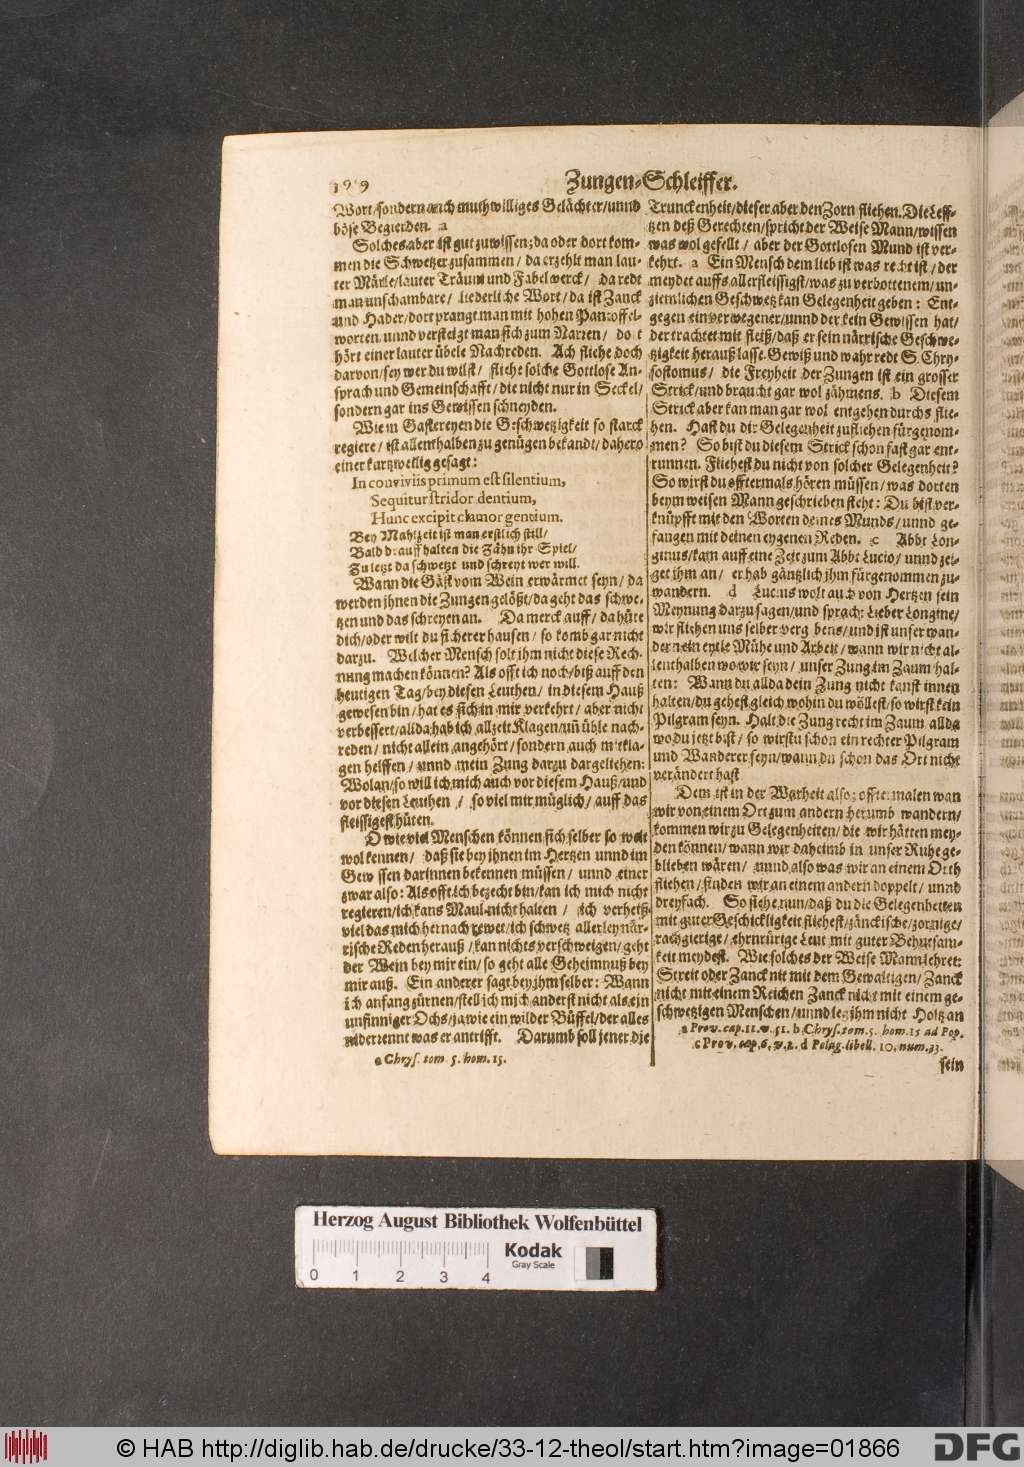 Zungen-Schleiffer.
Wort/sondern auch muthwilliges Gelächter/unnd
böse Begierden. a
Solches aber ist gut zu wissen; da oder dort kom-
men die Schwetzer zusammen / da erzehlt man lau-
ter Märle/lauter Träum und Fabelwerck / da redt
man unschambare / liederliche Wort/da ist Zanck
und Hader/dort prangt man mit hohen Pantoffel-
worten unnd versteigt man sich zum Narren / dort
hört einer lauter übele Nachreden. Ach fliehe doch
darvon/sey wer du wilst / fliehe solche Gottlose An-
sprach und Gemeinschafft/die nicht nur in Seckel/
sondern gar ins Gewissen schneyden.
Wie in Gastereyen die Geschwetzigkeit so starck
regiere / ist allenthalben zu genügen bekandt/dahero
einer kurtzweilig gesagt:
In conviviis primum est silentium,
Sequitur stridor dentium,
Hunc excipit clamor gentium.
Bey Mahlzeit ist man erstlich still/
Bald drauff halten die Zähn ihr Spiel/
Zuletzt da schwetzt und schreyt wer will.
Wann die Gäst vom Wein erwärmet seyn/da
werden jhnen die Zungen gelößt/da geht das schwe-
tzen und das schreyen an. Da merck auff/da hüte
dich/oder wilt du sicherer hausen / so komb gar nicht
darzu. Welcher Mensch solt jhm nicht diese Rech-
nung machen können? Als offt ich noch/biß auff den
heutigen Tag/bey diesen Leuthen / in diesem Hauß
gewesen bin/hat es sich in mir verkehrt / aber nicht
verbessert/allda hab ich allzeit Klagen/uñ üble nach-
reden / nicht allein angehört/sondern auch mit kla-
gen helffen / unnd mein Zung darzu dargeliehen:
Wolan/so will ich mich auch vor diesem Hauß/und
vor diesen Leuthen / so viel mir müglich/auff das
fleissigest hüten.
O wie viel Menschen können sich selber so weit
wol kennen / daß sie bey ihnen im Hertzen unnd im
Gewissen darinnen bekennen müssen / unnd einer
zwar also: Als offt ich bezecht bin/kan ich mich nicht
regieren/ich kans Maul nicht halten / ich verheiß
viel das mich hernach rewet/ich schwetz allerley när-
rische Reden herauß/kan nichts verschweigen/geht
der Wein bey mir ein/so geht alle Geheimnuß bey
mir auß. Ein anderer sagt bey jhm selber: Wann
ich anfang zürnen/stell ich mich anderst nicht als ein
unsinniger Ochs/ja wie ein wilder Büffel/der alles
niderrennt was er antrifft. Darumb soll jener die
a Chrys. tom. 5. hom. 15.
Trunckenheit/dieser aber den Zorn fliehen. Die Leff-
tzen deß Gerechten/spricht der Weise Mann/wissen
was wol gefellt / aber der Gottlosen Mund ist ver-
kehrt. a Ein Mensch dem lieb ist was recht ist/der
meydet auffs allerfleissigst/was zu verbottenem/un-
ziemlichen Geschwetz kan Gelegenheit geben: Ent-
gegen ein verwegener/unnd der kein Gewissen hat/
der trachtet mit fleiß/daß er sein närrische Geschwe-
tzigkeit herauß lasse. Gewiß und wahr redt S. Chry-
sostomus / die Freyheit der Zungen ist ein grosser
Strick/und braucht gar wol zähmens. b Diesem
Strick aber kan man gar wol entgehen durchs flie-
hen. Hast du die Gelegenheit zu fliehen fürgenom-
men? So bist du diesem Strick schon fast gar ent-
runnen. Fliehest du nicht von solcher Gelegenheit?
So wirst du offtermals hören müssen/was dorten
beym weisen Mann geschrieben steht: Du bist ver-
knüpfft mit den Worten deines Munds/unnd ge-
fangen mit deinen eygenen Reden. c Abbt Lon-
ginus/kam auff eine Zeit zum Abbt Lucio/unnd zei-
get jhm an / er hab gäntzlich jhm fürgenommen zu-
wandern. d Lucius wolt auch von Hertzen sein
Meynung darzu sagen/und sprach: Lieber Longine/
wir fliehen uns selber vergebens/und ist unser wan-
dern ein eytle Mühe und Arbeit/wann wir nicht al-
lenthalben wo wir seyn / unser Zung im Zaum hal-
ten: Wann du allda dein Zung nicht kanst innen
halten/du gehest gleich wohin du wöllest/so wirst kein
Pilgram seyn. Halt die Zung recht im Zaum allda
wo du jetzt bist/so wirstu schon ein rechter Pilgram
und Wanderer seyn/wann du schon das Ort nicht
verändert hast.
Dem ist in der Warheit also; offtermalen wan
wir von einem Ort zum andern herumb wandern/
kommen wir zu Gelegenheiten/die wir hätten mey-
den können/wann wir daheimb in unser Ruhe ge-
blieben wären / unnd also was wir an einem Orth
fliehen/finden wir an einem andern doppelt / unnd
dreyfach. So siehe nun/daß du die Gelegenheiten
mit guter Geschickligkeit fliehest/zänckische/zornige/
rachgierige/ehrnrürige Leut mit guter Behutsam-
keit meydest. Wie solches der Weise Mann lehret:
Streit oder Zanck nit mit dem Gewaltigen/Zanck
nicht mit einem Reichen Zanck nicht mit einem ge-
schwetzigen Menschen/unnd leg jhm nicht Holtz an
a Prov. cap. 11. v. 51. b Chrys. tom. 5. hom. 15 ad Pop.
c Prov. cap. 6. v. 2. d Pelag. libell. 10. num. 33.
sein
Herzog August Bibliothek Wolfenbüttel
0 1 2 3 4
Kodak
Gray Scale
© HAB http://diglib.hab.de/drucke/33-12-theol/start.htm?image=01866
DFG